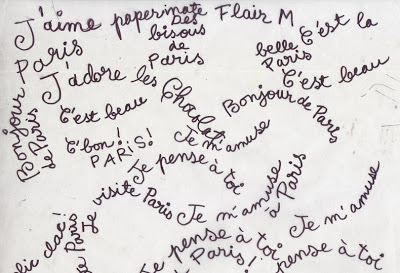 J'aime papermate Flair M
Des
bisous
de
Paris
C'est la
belle
Paris
Bonjour
Paris
J'adore les
C'est beau
C'est beau
Bonjour de Paris
C'bon!
PARIS!
Je m'amuse
Bonjour
de Paris
Je pense à toi
visite Paris
Je
Je m'amuse
à Paris
Je m'amuse
clac!
de Paris
Je pense à toi
Paris!
pense à toi